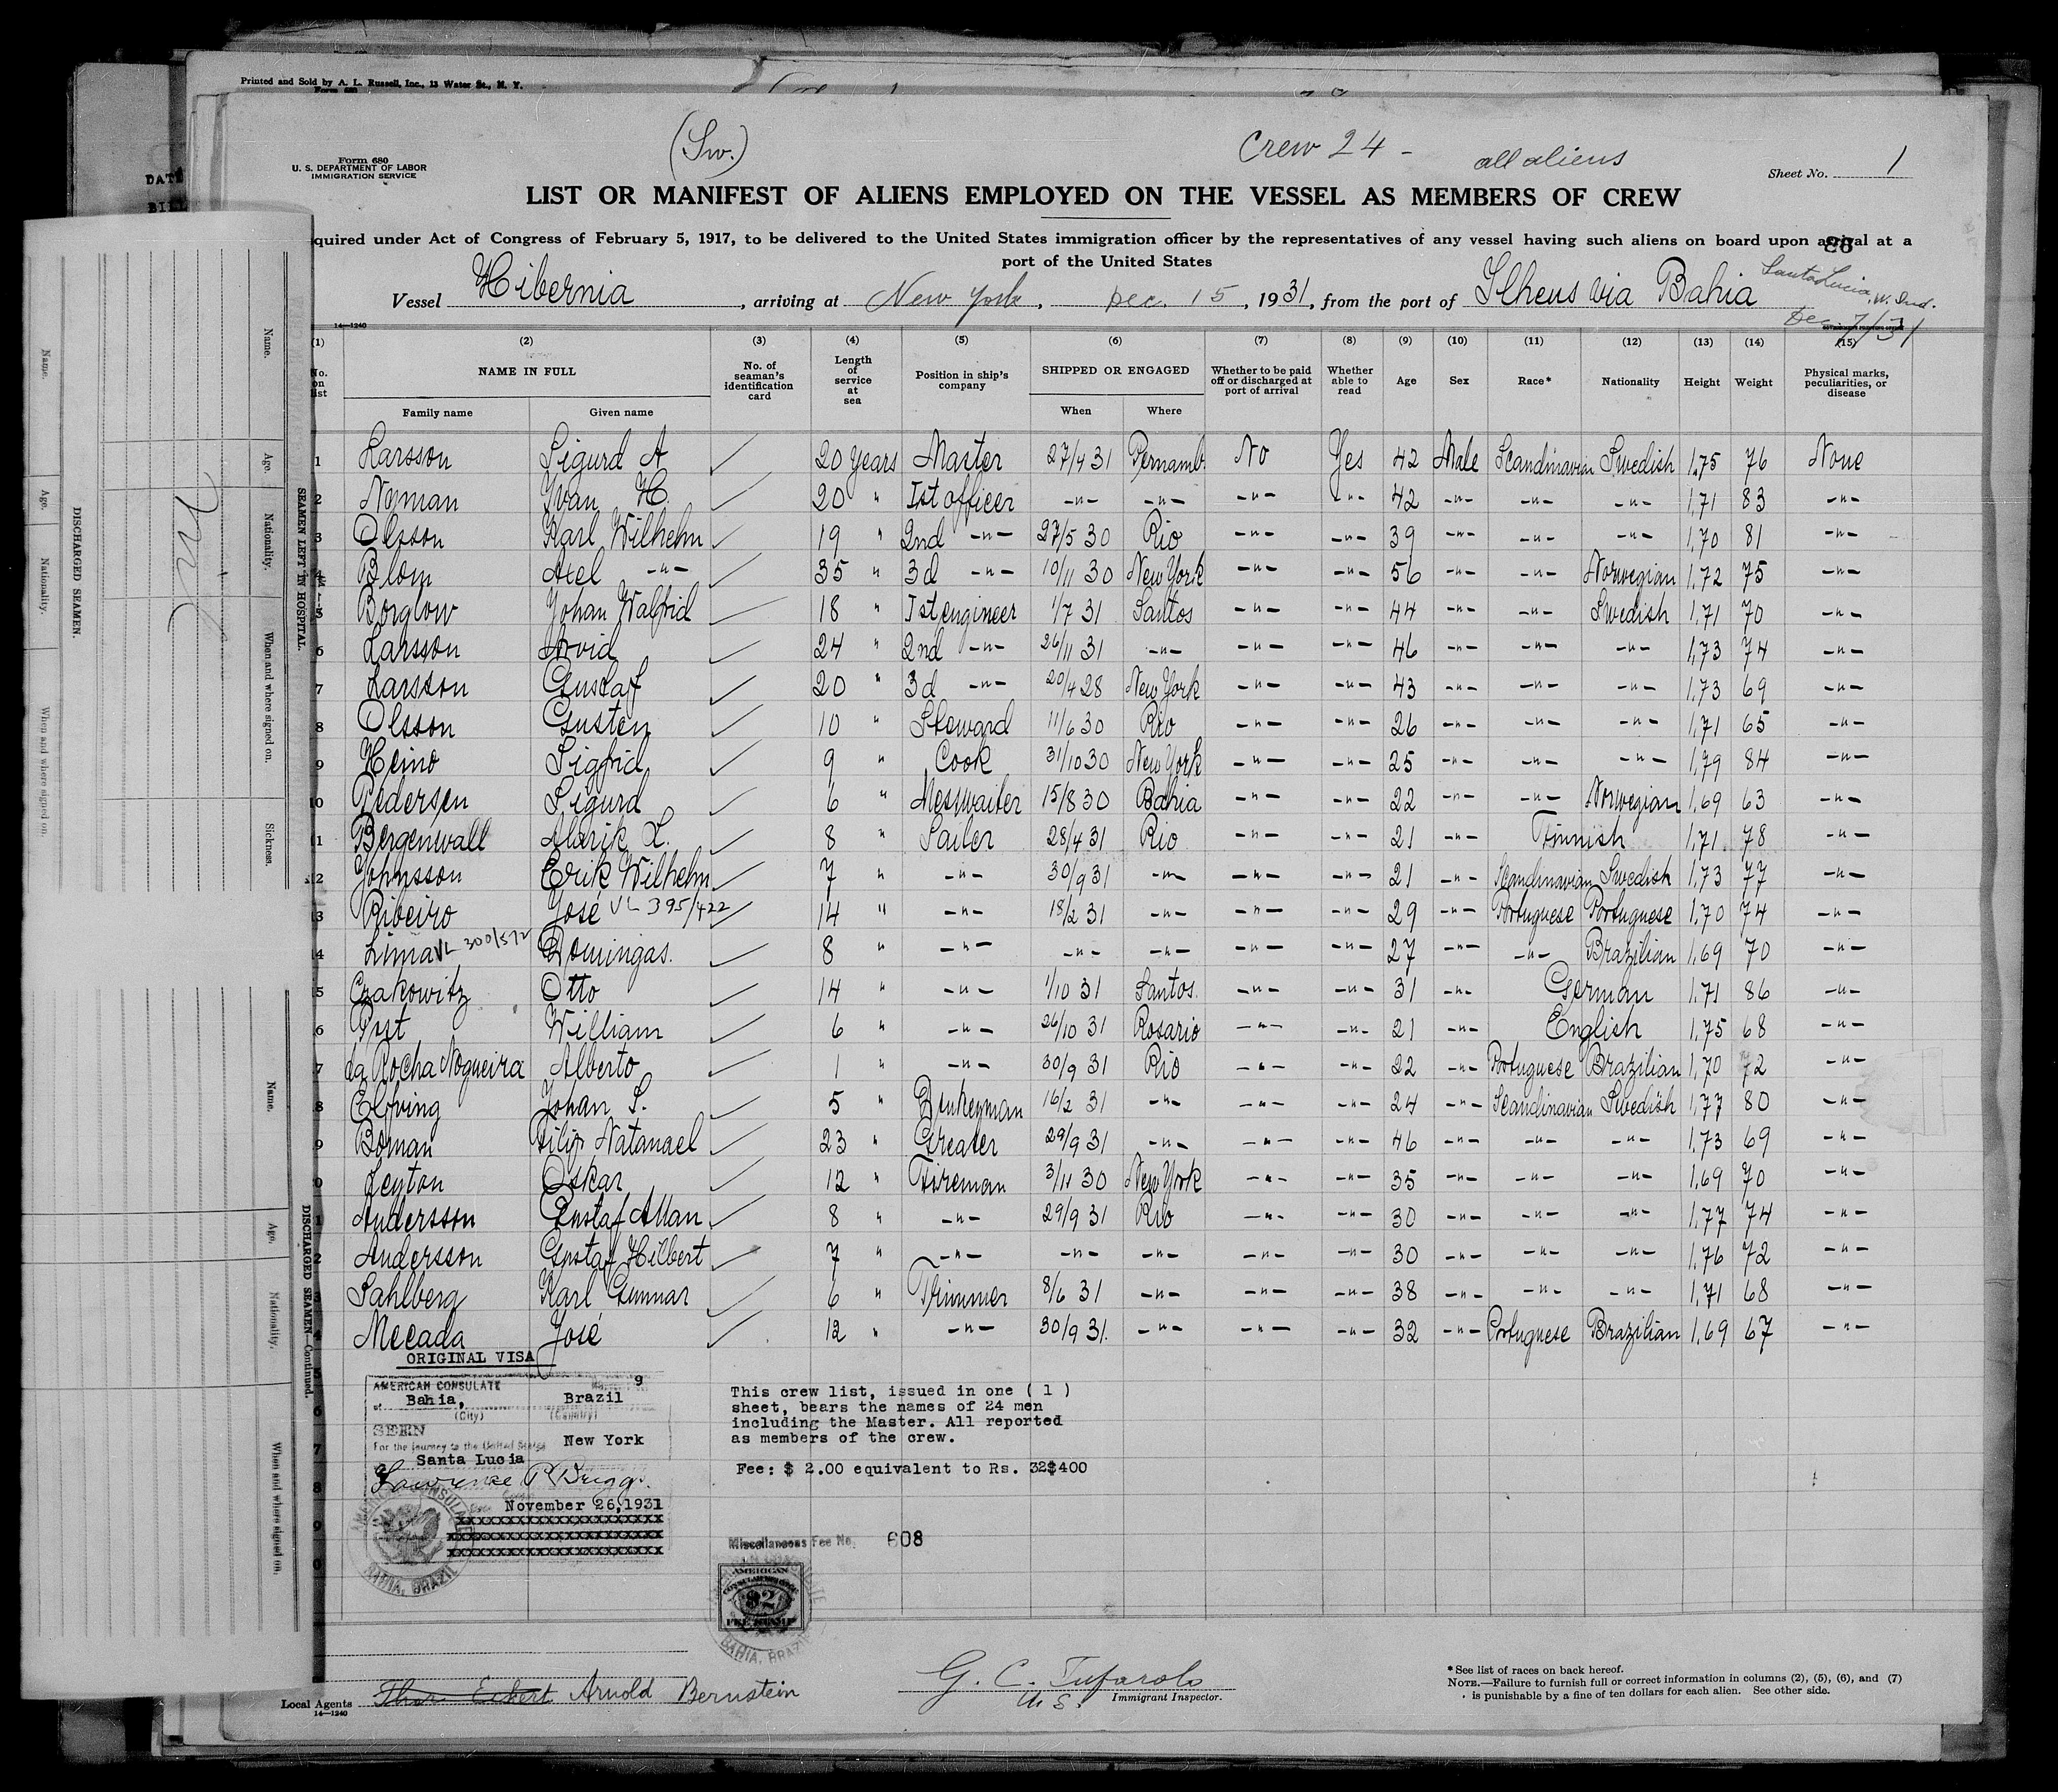 Printed and Sold by A. L. Russell, Inc., 13 Water St., N. Y.
Form 680
(Sw.)
Crew 24 - all aliens
Form 680
U. S. DEPARTMENT OF LABOR
IMMIGRATION SERVICE
Sheet No. 1
LIST OR MANIFEST OF ALIENS EMPLOYED ON THE VESSEL AS MEMBERS OF CREW
quired under Act of Congress of February 5, 1917, to be delivered to the United States immigration officer by the representatives of any vessel having such aliens on board upon arrival at a
port of the United States
Vessel Hibernia, arriving at New York, Dec. 15, 1931, from the port of Ilheus via Bahia Santa Lucia, W. Ind.
Dec 7/31
14—1240
(1) (2) (3) (4) (5) (6) (7) (8) (9) (10) (11) (12) (13) (14) (15)
No. on list NAME IN FULL No. of seaman's identification card Length of service at sea Position in ship's company SHIPPED OR ENGAGED Whether to be paid off or discharged at port of arrival Whether able to read Age Sex Race* Nationality Height Weight Physical marks, peculiarities, or disease
Family name Given name When Where
1 Larsson Sigurd A ✓ 20 years Master 27/4 31 Pernamb. No Yes 42 Male Scandinavian Swedish 1,75 76 None
2 Nyman Yvan H. ✓ 20 " Ist officer -"- -"- -"- -"- 42 -"- -"- -"- 1,71 83 -"-
3 Olsson Karl Wilhelm ✓ 19 " 2nd -"- 27/5 30 Rio -"- -"- 39 -"- -"- -"- 1,70 81 -"-
4 Blom Axel -"- ✓ 35 " 3d -"- 10/11 30 New York -"- -"- 56 -"- -"- Norwegian 1,72 75 -"-
5 Borglow Johan Walfrid ✓ 18 " Ist engineer 1/7 31 Santos -"- -"- 44 -"- -"- Swedish 1,71 70 -"-
6 Larsson Arvid ✓ 24 " 2nd -"- 26/11 31 -"- -"- -"- 46 -"- -"- -"- 1,73 74 -"-
7 Larsson Gustaf ✓ 20 " 3d -"- 20/4 28 New York -"- -"- 43 -"- -"- -"- 1,73 69 -"-
8 Olsson Gusten ✓ 10 " Steward 11/6 30 Rio -"- -"- 26 -"- -"- -"- 1,71 65 -"-
9 Heino Sigfrid ✓ 9 " Cook 31/10 30 New York -"- -"- 25 -"- -"- -"- 1,79 84 -"-
10 Pedersen Sigurd ✓ 6 " Messwaiter 15/8 30 Bahia -"- -"- 22 -"- -"- Norwegian 1,69 63 -"-
11 Bergenwall Alarik L. ✓ 8 " Sailer 28/4 31 Rio -"- -"- 21 -"- Finnish 1,71 78 -"-
12 Johnsson Erik Wilhelm ✓ 7 " -"- 30/9 31 -"- -"- -"- 21 -"- Scandinavian Swedish 1,73 77 -"-
3 Ribeiro José VL 395/422 ✓ 14 " -"- 18/2 31 -"- -"- -"- 29 -"- Portuguese Portuguese 1,70 74 -"-
4 Lima VL 300/572 Domingas. ✓ 8 " -"- -"- -"- -"- -"- 27 -"- -"- Brazilian 1,69 70 -"-
5 Czakowitz Otto ✓ 14 " -"- 1/10 31 Santos. -"- -"- 31 -"- German 1,71 86 -"-
6 Pust William ✓ 6 " -"- 26/10 31 Rosario -"- -"- 21 -"- English 1,75 68 -"-
7 da Rocha Nogueira Alberto ✓ 1 " -"- 30/9 31 Rio -"- -"- 22 -"- Portuguese Brazilian 1,70 72 -"-
8 Elfving Johan S. ✓ 5 " Donkeyman 16/2 31 -"- -"- -"- 24 -"- Scandinavian Swedish 1,77 80 -"-
9 Boman Filip Natanael ✓ 23 " Greaser 29/9 31 -"- -"- -"- 46 -"- -"- -"- 1,73 69 -"-
0 Leyton Oskar ✓ 12 " Fireman 3/11 30 New York -"- -"- 35 -"- -"- -"- 1,69 70 -"-
1 Andersson Gustaf Allan ✓ 8 " -"- 29/9 31 Rio -"- -"- 30 -"- -"- -"- 1,77 74 -"-
2 Andersson Gustaf Hilbert ✓ 7 " -"- -"- -"- -"- -"- 30 -"- -"- -"- 1,76 72 -"-
3 Sahlberg Karl Gunnar ✓ 6 " Trimmer 8/6 31 -"- -"- -"- 38 -"- -"- -"- 1,71 68 -"-
4 Mecada José ✓ 12 " -"- 30/9 31. -"- -"- -"- 32 -"- Portuguese Brazilian 1,69 67 -"-
ORIGINAL VISA
AMERICAN CONSULATE 9
at Bahia, Brazil
(City) (Country)
SEEN
For the journey to the United States New York
Santa Lucia
Lawrence P. Briggs.
November 26, 1931
AMERICAN CONSULATE
BAHIA, BRAZIL
This crew list, issued in one ( 1 )
sheet, bears the names of 24 men
including the Master. All reported
as members of the crew.
Fee: $ 2.00 equivalent to Rs. 32$400
Miscellaneous Fee No. 608
AMERICAN
$2
FEE STAMP
BAHIA, BRAZIL
Local Agents Thor Eckert Arnold Bernstein
14—1240
G. C. Tufarolo
U. S. Immigrant Inspector.
* See list of races on back hereof.
NOTE.—Failure to furnish full or correct information in columns (2), (5), (6), and (7)
is punishable by a fine of ten dollars for each alien. See other side.
SEAMEN LEFT IN HOSPITAL.
Name. Age. Nationality. When and where signed on. Sickness.
DISCHARGED SEAMEN.
Name. Age. Nationality. When and where signed on.
DISCHARGED SEAMEN—Continued.
Name. Age. Nationality. When and where signed on.